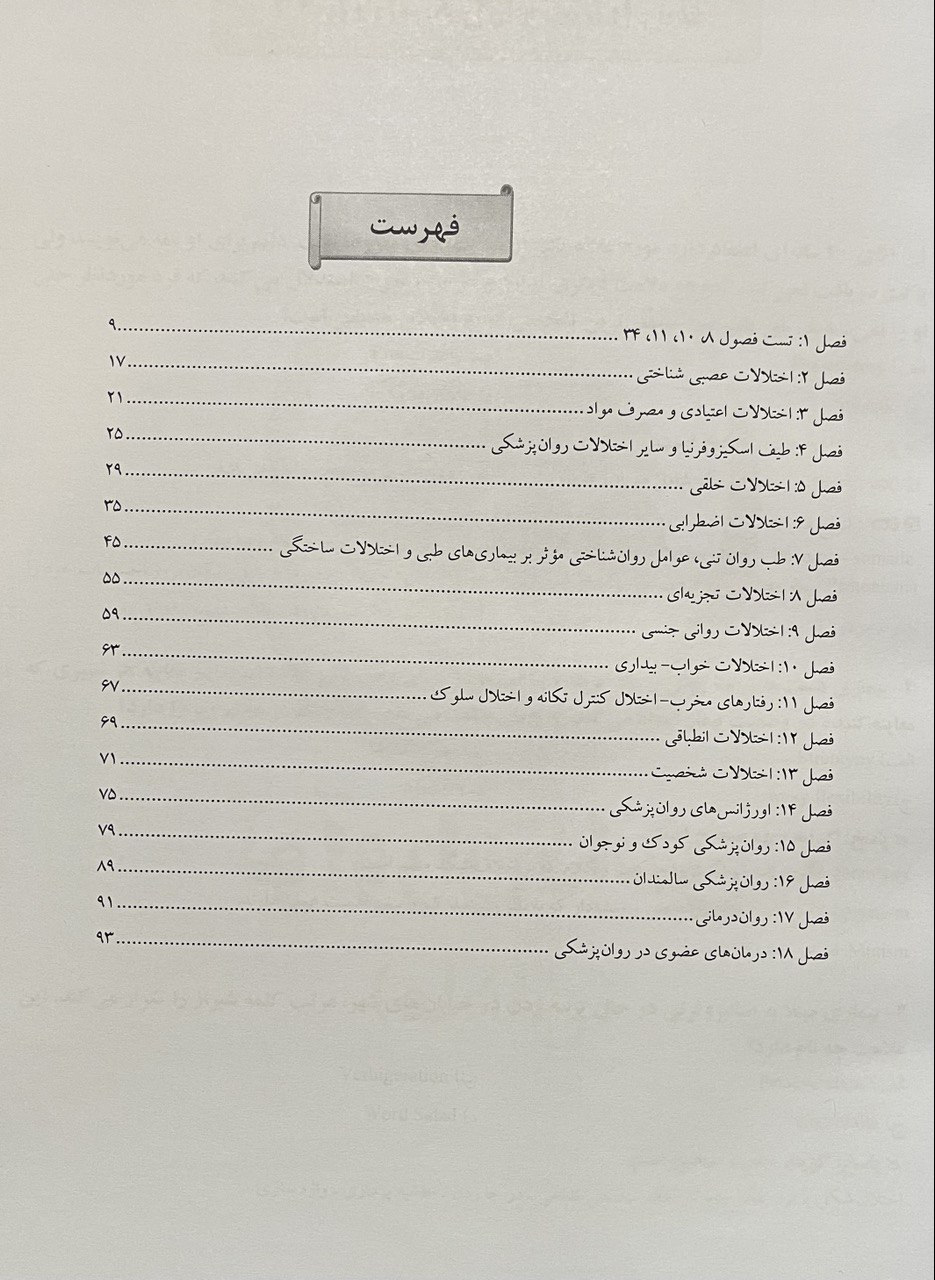 فهرست
فصل ۱: تست فصول ۸، ۱۰، ۱۱، ۳۴ ........ ۹
فصل ۲: اختلالات عصبی شناختی ........ ۱۷
فصل ۳: اختلالات اعتیادی و مصرف مواد ........ ۲۱
فصل ۴: طیف اسکیزوفرنیا و سایر اختلالات روان‌پزشکی ........ ۲۵
فصل ۵: اختلالات خلقی ........ ۲۹
فصل ۶: اختلالات اضطرابی ........ ۳۵
فصل ۷: طب روان تنی، عوامل روان‌شناختی مؤثر بر بیماری‌های طبی و اختلالات ساختگی ........ ۴۵
فصل ۸: اختلالات تجزیه‌ای ........ ۵۵
فصل ۹: اختلالات روانی جنسی ........ ۵۹
فصل ۱۰: اختلالات خواب- بیداری ........ ۶۳
فصل ۱۱: رفتارهای مخرب- اختلال کنترل تکانه و اختلال سلوک ........ ۶۷
فصل ۱۲: اختلالات انطباقی ........ ۶۹
فصل ۱۳: اختلالات شخصیت ........ ۷۱
فصل ۱۴: اورژانس‌های روان‌پزشکی ........ ۷۵
فصل ۱۵: روان‌پزشکی کودک و نوجوان ........ ۷۹
فصل ۱۶: روان‌پزشکی سالمندان ........ ۸۹
فصل ۱۷: روان‌درمانی ........ ۹۱
فصل ۱۸: درمان‌های عضوی در روان‌پزشکی ........ ۹۳